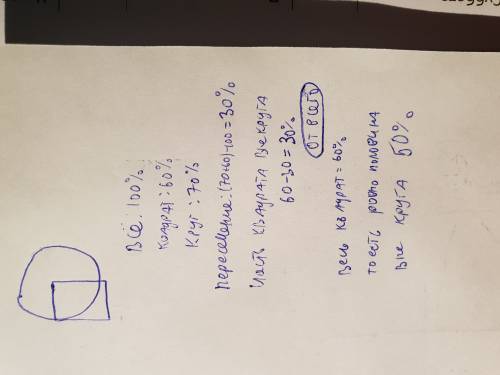 Всё: 100%
Квадрат: 60%
Круг: 70%
Пересечение: (70+60)-100=30%
Часть квадрата вне круга
60-30=30%
от всего
Весь квадрат=60%
то есть ровно половина
вне круга 50%